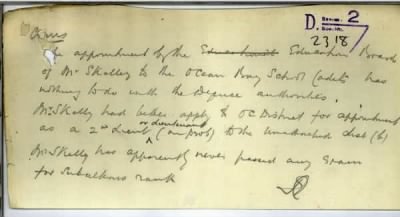 D. 2
2318
The appointment by the Education Board
of Mr Skelley to the Ocean Bay School Cadets has
nothing to do with the Defence authorities.
Mr Skelly had better apply to OC District for appointment
or Lieutenant
as a 2nd Lieut (on prob) to the Unattached List (b)
Mr Skelly has apparently never passed any Exam
for Subalterns rank